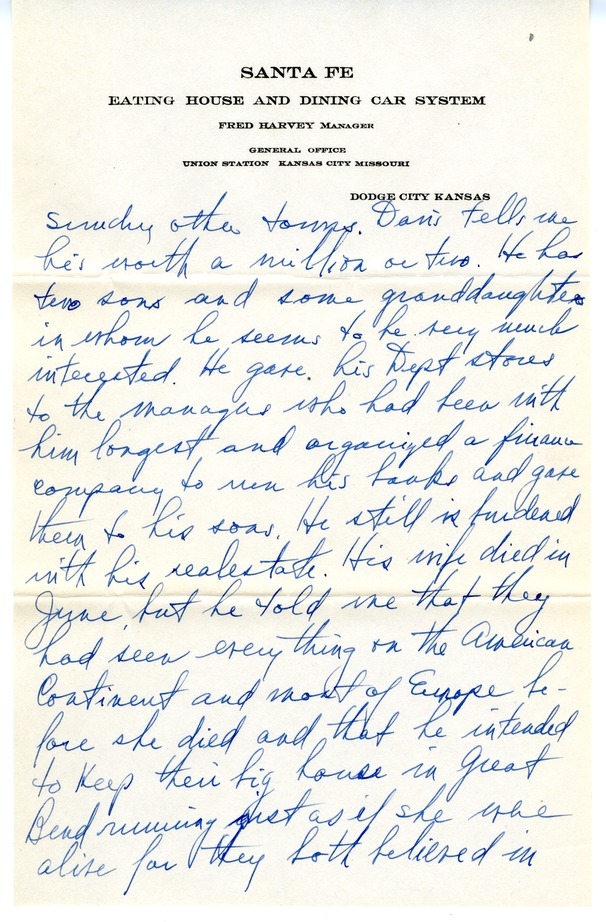 SANTA FE
EATING HOUSE AND DINING CAR SYSTEM
FRED HARVEY MANAGER
GENERAL OFFICE
UNION STATION KANSAS CITY MISSOURI
DODGE CITY KANSAS
sundry other towns. Davis tells me
he's worth a million or two. He has
two sons and some granddaughters
in whom he seems to be very much
interested. He gave his Dept stores
to the managers who had been with
him longest and organized a finance
company to run his banks and gave
them to his sons. He still is burdened
with his realestate. His wife died in
June, but he told me that they
had seen everything on the American
Continent and most of Europe be-
fore she died and that he intended
to keep their big house in Great
Bend running just as if she were
alive for they both believed in